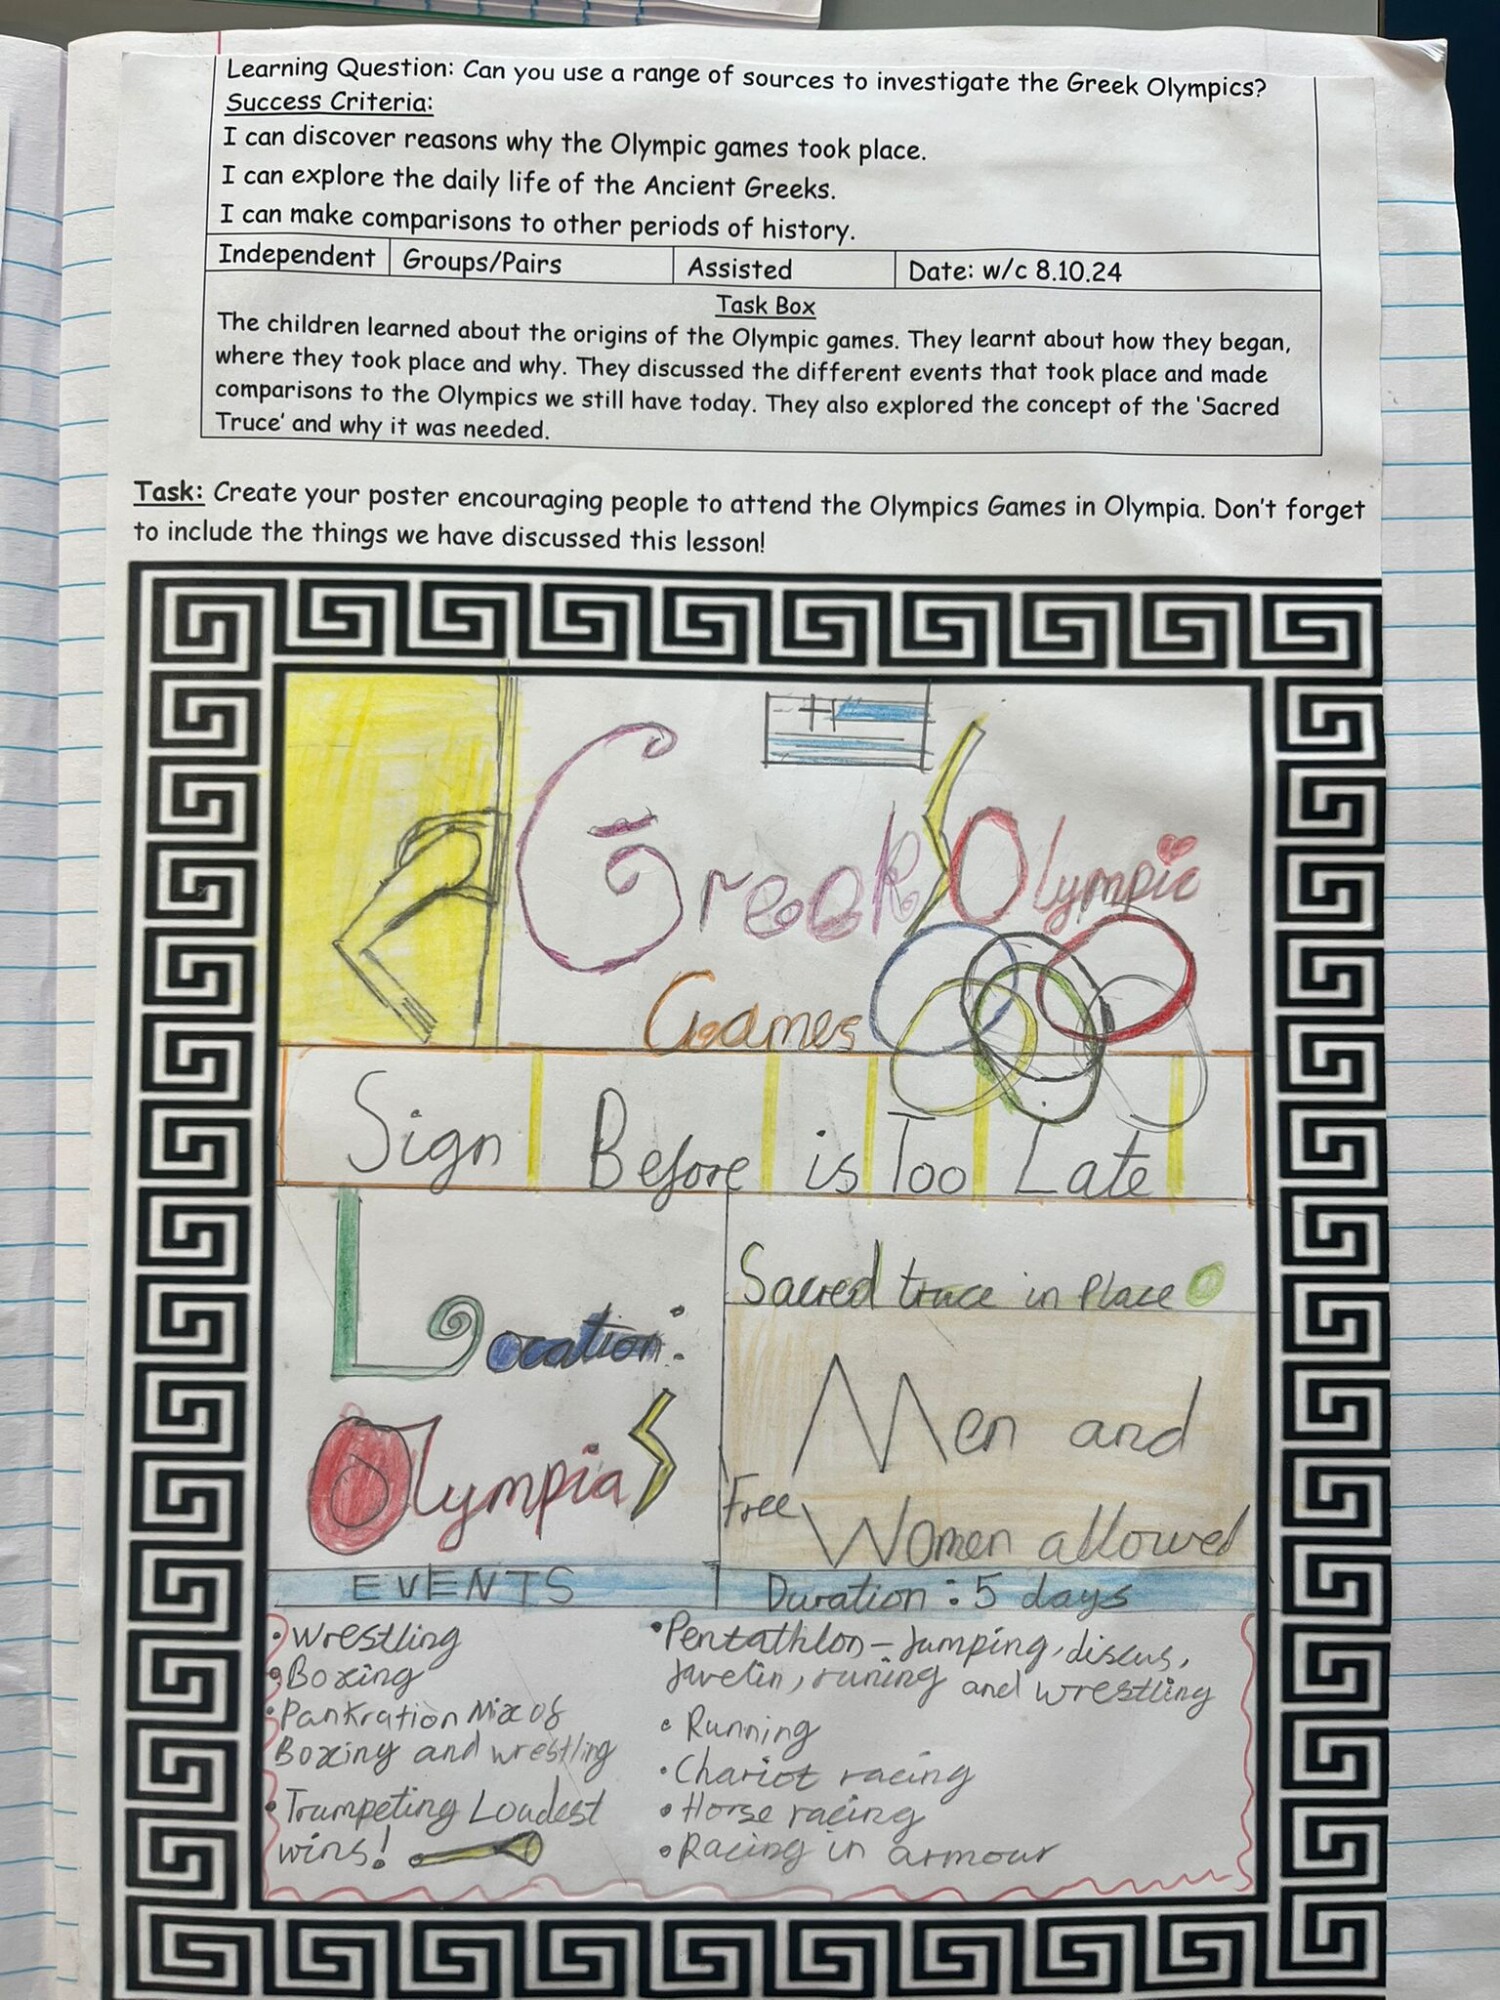 Learning Question: Can you use a range of sources to investigate the Greek Olympics?
Success Criteria:
I can discover reasons why the Olympic games took place.
I can explore the daily life of the Ancient Greeks.
I can make comparisons to other periods of history.
Independent Groups/Pairs Assisted Date: w/c 8.10.24
Task Box
The children learned about the origins of the Olympic games. They learnt about how they began,
where they took place and why. They discussed the different events that took place and made
comparisons to the Olympics we still have today. They also explored the concept of the 'Sacred
Truce' and why it was needed.
Task: Create your poster encouraging people to attend the Olympics Games in Olympia. Don't forget
to include the things we have discussed this lesson!
Greek Olympic
Games
Sign Before is Too Late
Location:
Olympia
Sacred truce in Place
Men and
Free Women allowed
EVENTS
• Wrestling
• Boxing
• Pankration Mix of
Boxing and wrestling
• Trumpeting Loudest
wins!
Duration: 5 days
• Pentathlon - Jumping, discus,
Javelin, runing and wrestling
• Running
• Chariot racing
• Horse racing
• Racing in armour